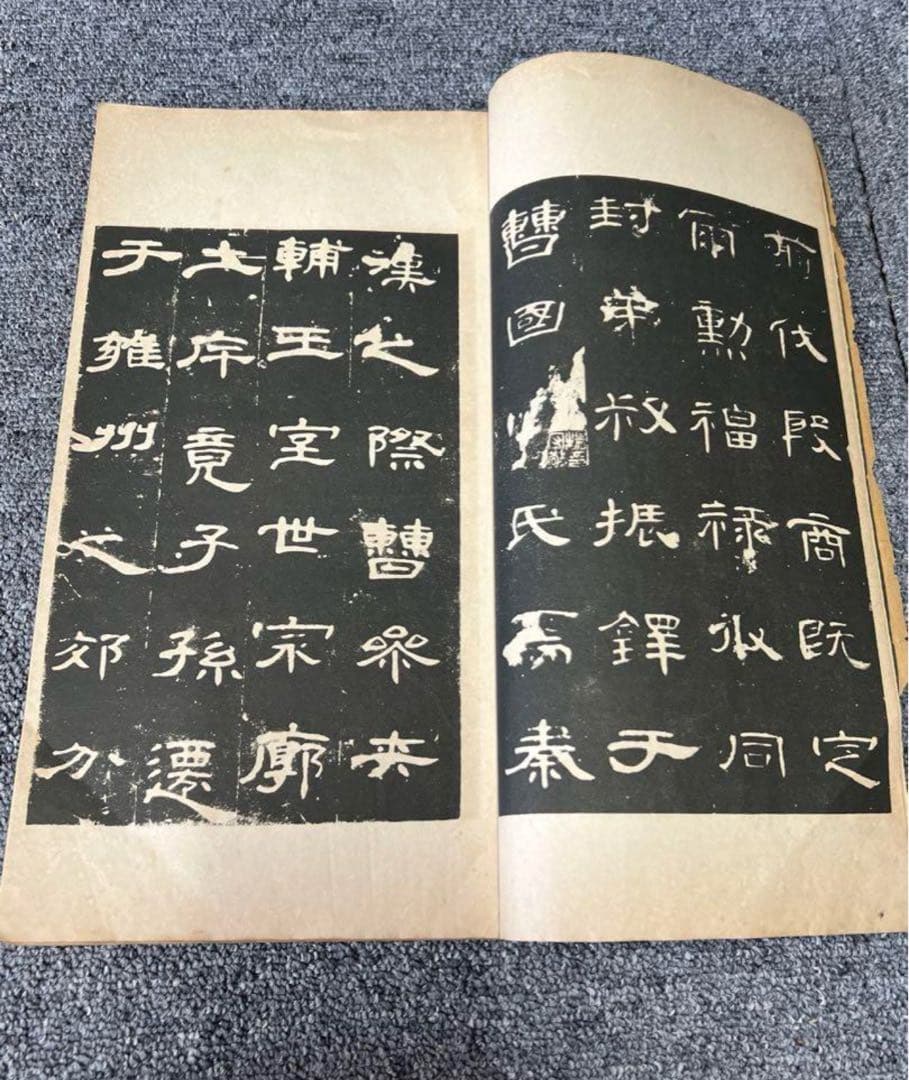 前伐殷商既定
爾勳福祿攸同
封弟叔振鐸于
曹國氏焉秦
漢之際曹參夾
輔王室世宗廓
土斥竟子孫遷
于雍州之郊分